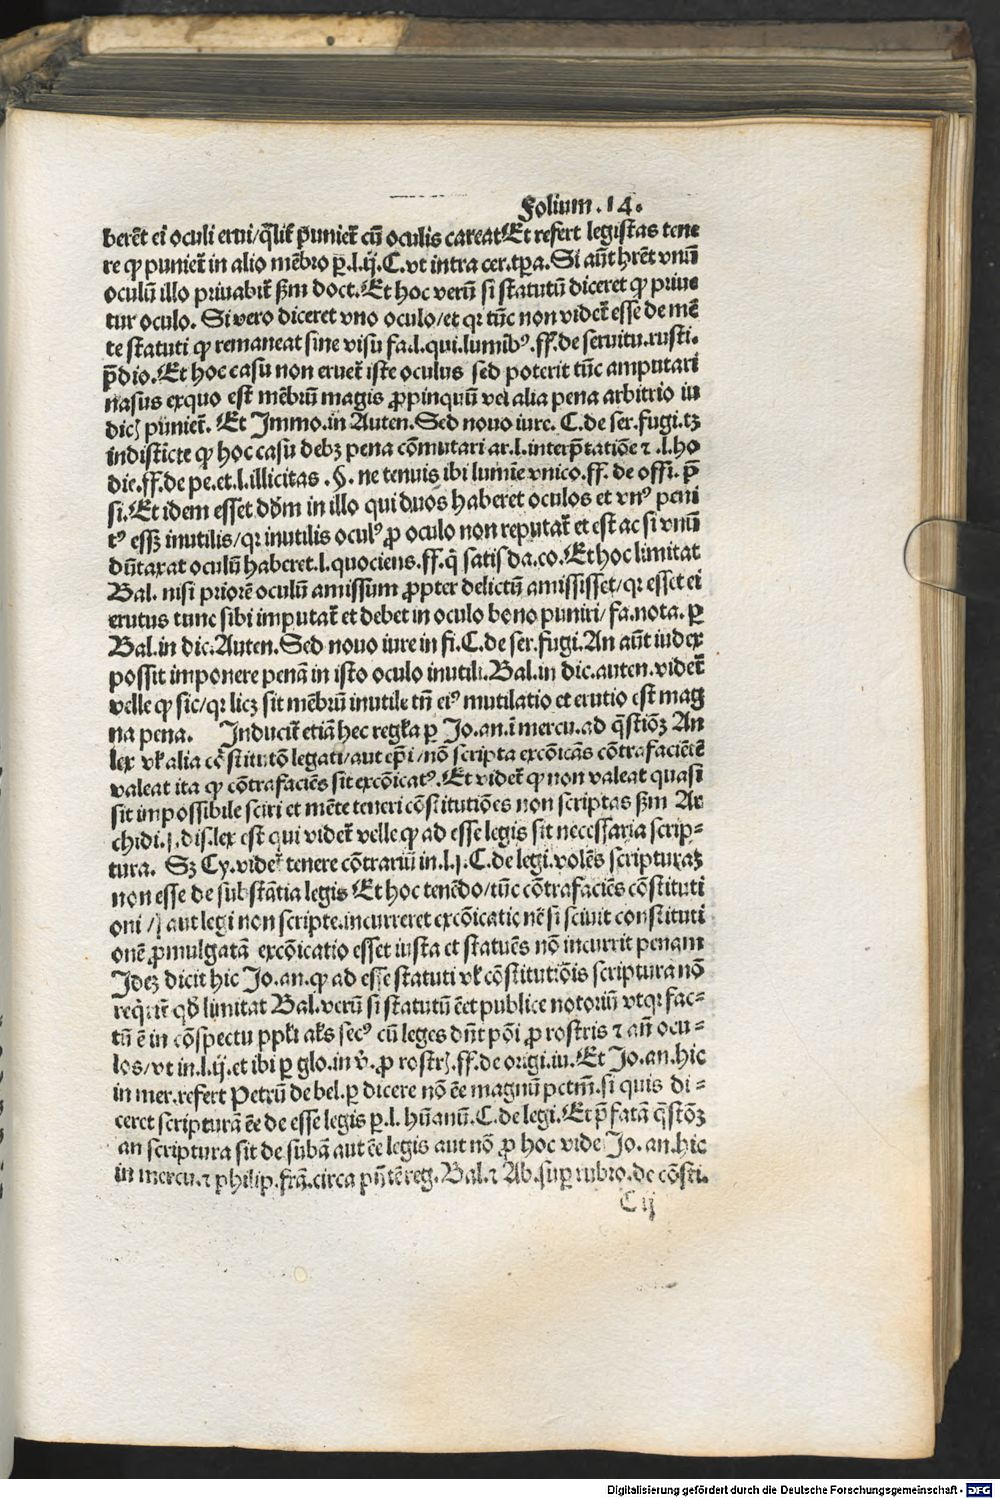 Folium .14.
berēt ei oculi erui/q̄lit̄ puniet̄ cū oculis careat Et refert legistas tene
re ꝙ puniet̄ in alio mēbro ꝑ.l.ij.C.vt intra cer.tꝑa. Si aūt hrēt vnū
oculū illo priuabit̄ ẞm doct. Et hoc verū si statutū diceret ꝙ priue
tur oculo. Si vero diceret vno oculo/et qr tūc non videt̄ esse de mē
te statuti ꝙ remaneat sine visu fa.l.qui.lumibꝰ.ff.de seruitu.rusti.
p̄dio. Et hoc casu non eruet̄ iste oculus sed poterit tūc amputari
nasus exquo est mēbrū magis ꝓpinquū vel alia pena arbitrio iu
dicꝭ puniet̄. Et Immo.in Auten. Sed nouo iure. C. de ser. fugi. tꝫ
indisticte ꝙ hoc casu debꝫ pena cōmutari ar.l.interp̄tatiōe ⁊ .l.ho
die.ff.de pe.et.l.illicitas .§. ne tenuis ibi lumīe vnico.ff. de offi. p̄
si. Et idem esset dd̄m in illo qui duos haberet oculos et vnꝰ peni
tꝰ essꝫ inutilis/qr inutilis oculꝰ ꝓ oculo non reputat̄ et est ac si vnū
dūtaxat oculū haberet.l.quociens.ff.q̄ satisda.co. Et hoc limitat
Bal. nisi priorē oculū amissum ꝓpter delictū amississet/qr esset ei
erutus tunc sibi imputat̄ et debet in oculo bono puniri/fa.nota. ꝑ
Bal.in dic.Auten. Sed nouo iure in fi.C.de ser.fugi. An aūt iudex
possit imponere penā in isto oculo inutili. Bal.in dic.auten.videt̄
velle ꝙ sic/qr licꝫ sit mēbrū inutile tn̄ eiꝰ mutilatio et erutio est mag
na pena. Inducit̄ etiā hec regl̄a ꝑ Jo.an.ī mercu.ad q̄stiōꝫ An
lex vl̄ alia cōstitutō legati/aut ep̄i/nō scripta excōicās cōtrafaciētē
valeat ita ꝙ cōtrafaciēs sit excōicatꝰ. Et videt̄ ꝙ non valeat quasi
sit impossibile sciri et mēte teneri cōstitutiōes non scriptas ẞm Ar
chidi.j.dis.lex est qui videt̄ velle ꝙ ad esse legis sit necessaria scrip-
tura. Sꝫ Cy.videt̄ tenere cōtrariū in.l.j.C.de legi.volēs scripturaꝫ
non esse de substātia legis Et hoc tenēdo/tūc cōtrafaciēs cōstituti
oni / aut legi non scripte.incurreret excōicatiōnē si sciuit constituti
onē ꝓmulgatā excōicatio esset iusta et statuēs nō incurrit penam
Ideꝫ dicit hic Jo.an.ꝙ ad esse statuti vl̄ cōstitutiōis scriptura nō
reqrit̄ qd̄ limitat Bal.verū si statutū eēt publice notoriū vtqr fac-
tū ē in cōspectu ppl̄i al̄s secꝰ cū leges dn̄t pōi ꝓ rostris ⁊ an̄ ocu-
los/vt in.l.ij.et ibi ꝑ glo.in v̄.ꝓ rostrꝭ.ff.de origi.iu. Et Jo.an.hic
in mer.refert Petrū de bel.ꝑ dicere nō ēe magnū pctm̄.si quis di-
ceret scripturā ēe de esse legis ꝑ.l. hūanū.C.de legi. Et p̄fatā q̄stōꝫ
an scriptura sit de subā aut ēe legis aut nō ꝓ hoc vide Jo.an.hic
in mercu.⁊ philip.frā.circa pn̄tē reg. Bal.⁊ Ab.suꝑ rubro.de cōsti.
C ij
Digitalisierung gefördert durch die Deutsche Forschungsgemeinschaft - DFG